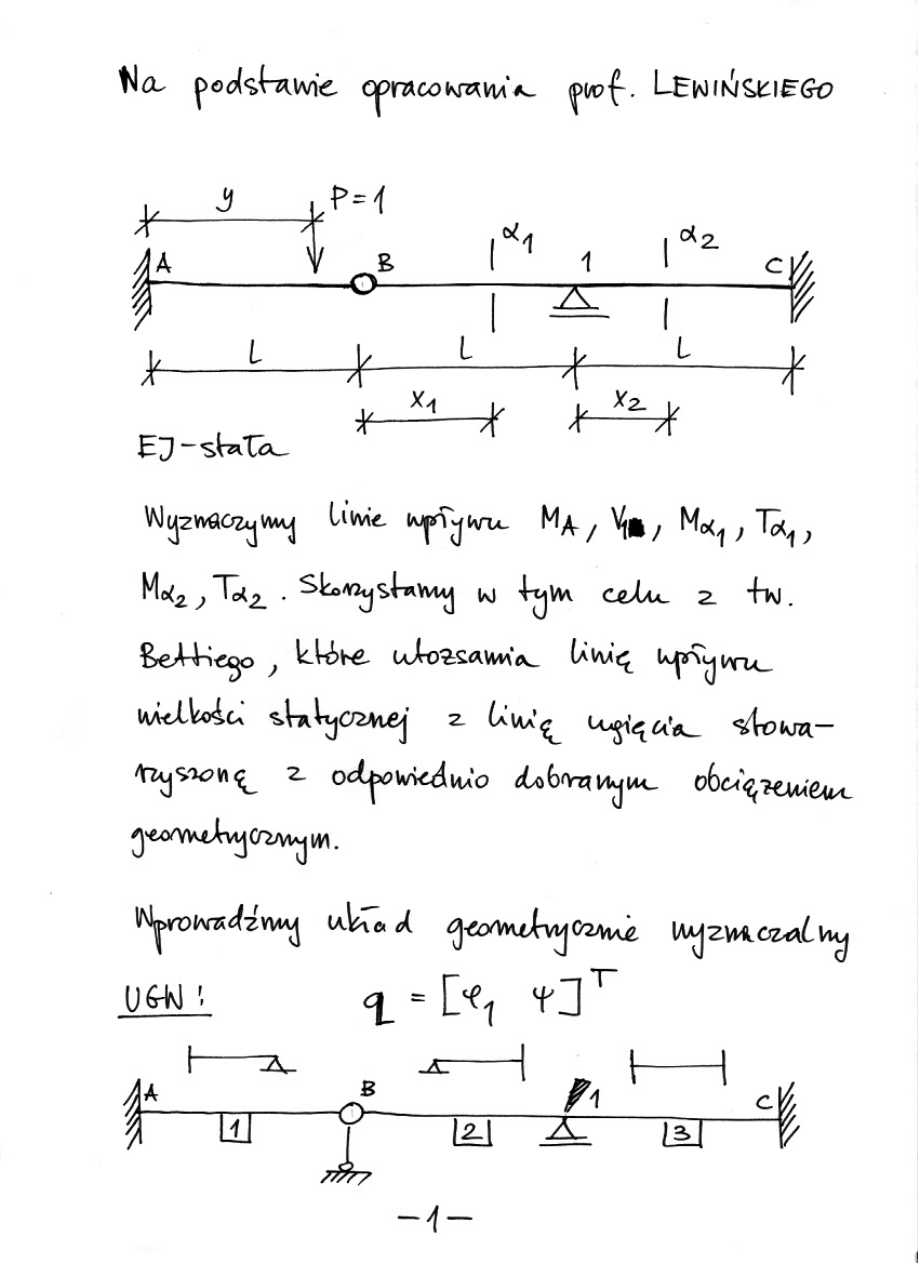 Na podstawie opracowania prof. LEWIŃSKIEGO
y P=1
α1 α2
A B 1 C
L L L
x1 x2
EJ-stała
Wyznaczymy linie wpływu MA, V1, Mα1, Tα1,
Mα2, Tα2. Skorzystamy w tym celu z tw.
Bettiego, które utożsamia linię wpływu
wielkości statycznej z linią ugięcia stowa-
rzyszoną z odpowiednio dobranym obciążeniem
geometrycznym.
Wprowadźmy układ geometrycznie wyznaczalny
UGW: q = [φ1 ψ]T
A B 1 C
1 2 3
-1-